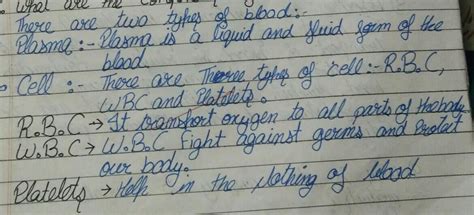 What are the
There are two types of blood:-
Plasma:- Plasma is a liquid and fluid form of the
blood
Cell:- There are Threee types of cell:- R.B.C,
WBC and Platelets.
R.B.C → It transport oxygen to all parts of the body
W.B.C → W.B.C Fight against germs and Protect
our body.
Platelets → Help in the clothing of blood